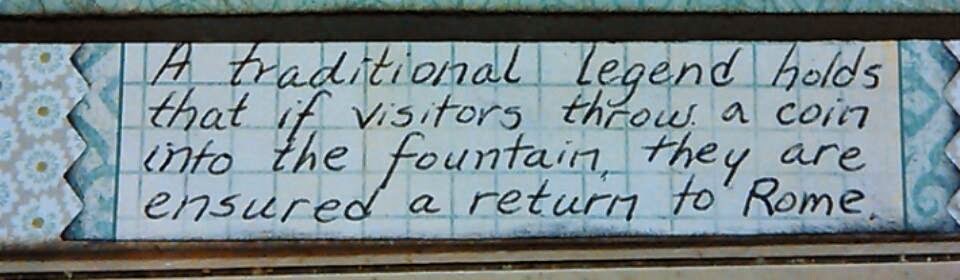 A traditional legend holds
that if visitors throw a coin
into the fountain, they are
ensured a return to Rome.